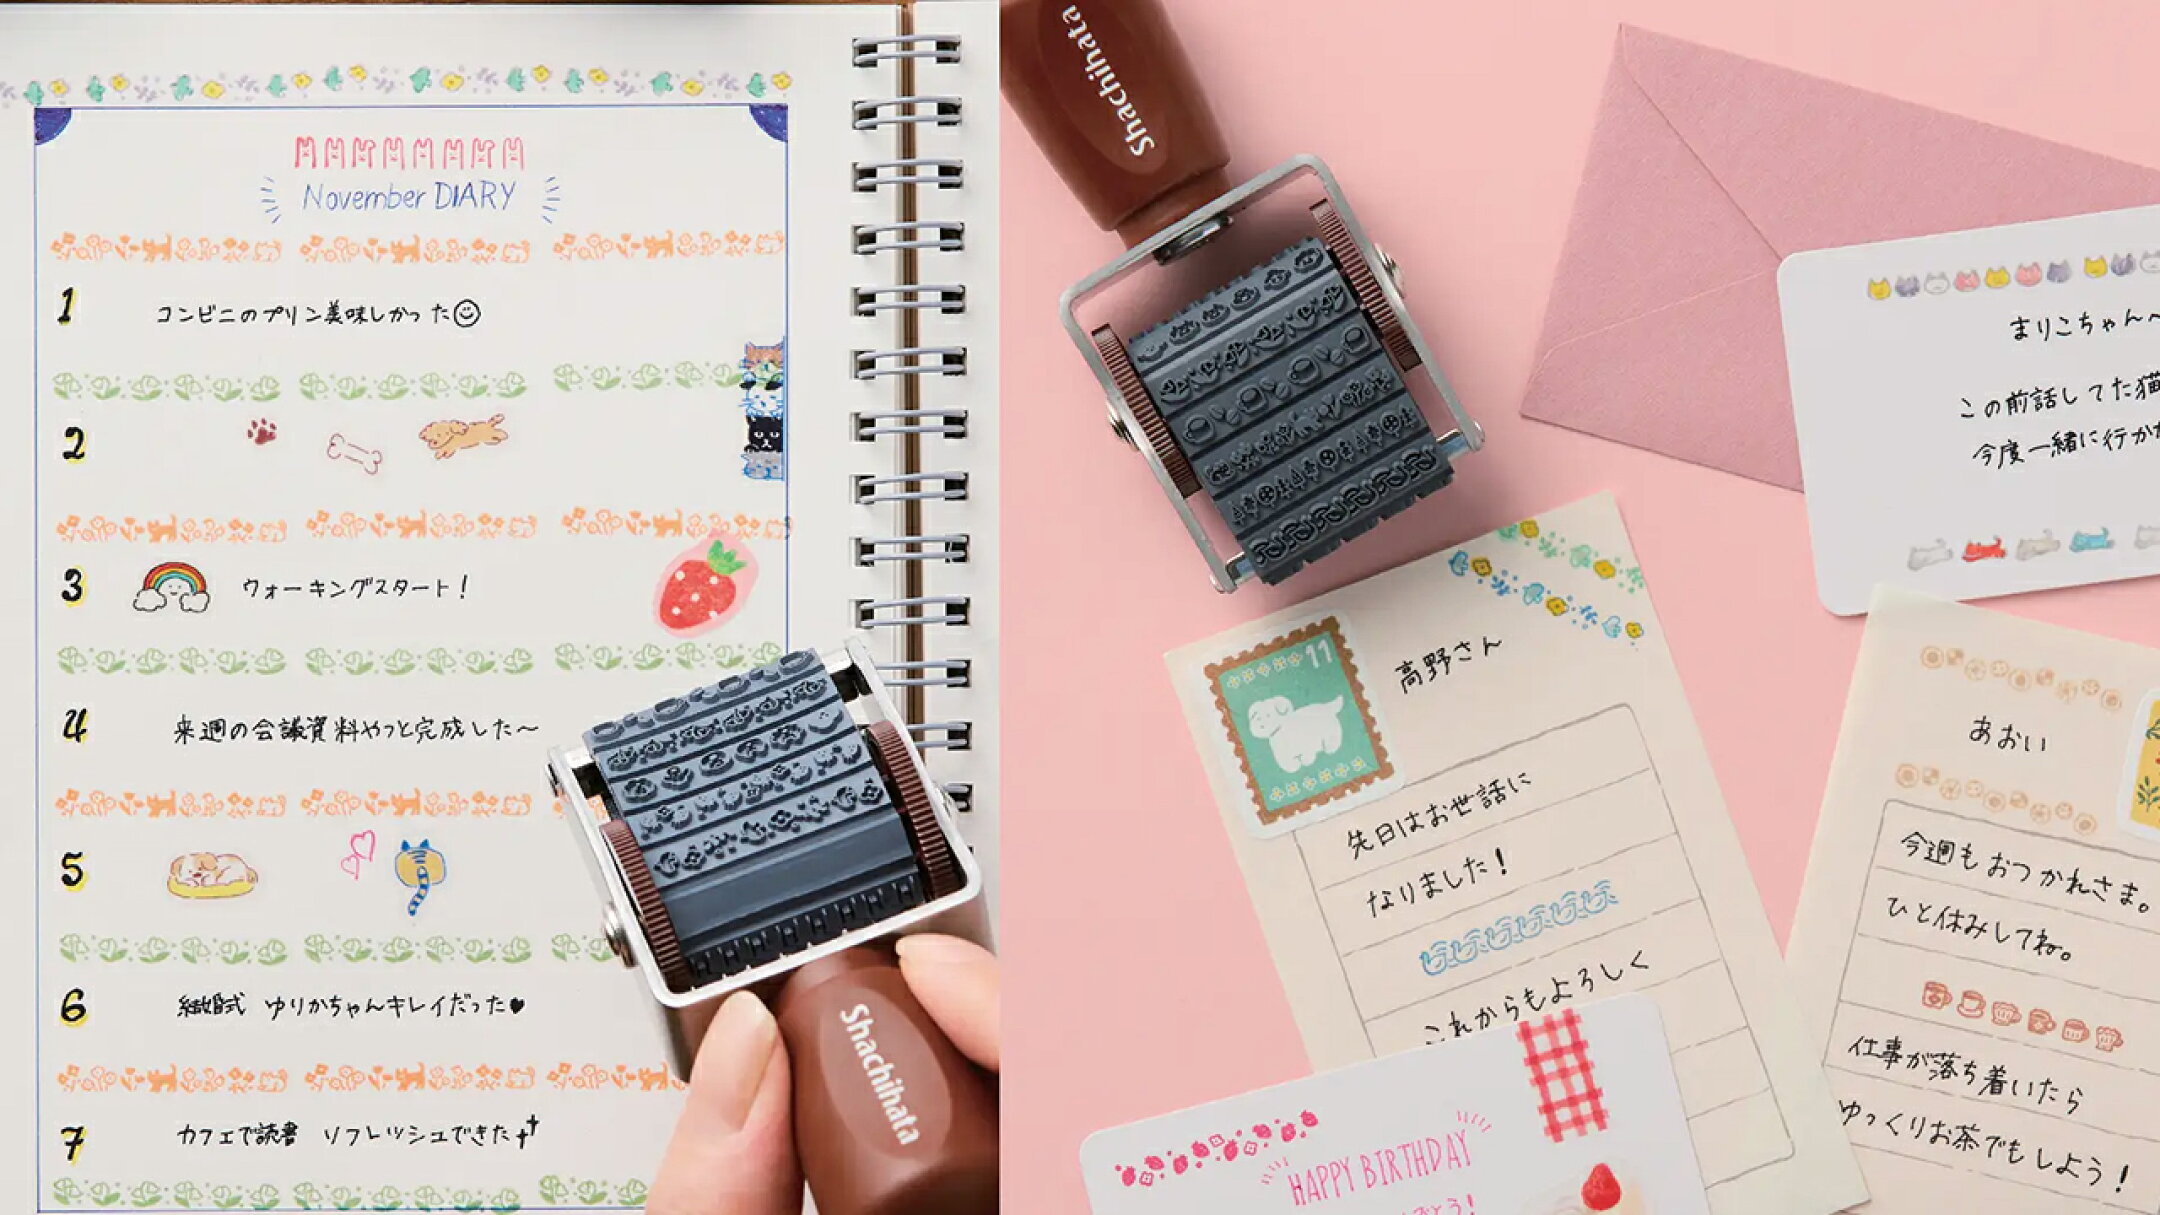 November DIARY
1 コンビニのプリン美味しかった☺
2
3 ウォーキングスタート！
4 来週の会議資料やっと完成した〜
5
6 結婚式 ゆりかちゃんキレイだった♥
7 カフェで読書 リフレッシュできた
Shachihata
Shachihata
まりこちゃん〜
この前話してた猫
今度一緒に行か
11
高野さん
先日はお世話に
なりました！
これからもよろしく
あおい
今週もおつかれさま。
ひと休みしてね。
仕事が落ち着いたら
ゆっくりお茶でもしよう！
HAPPY BIRTHDAY